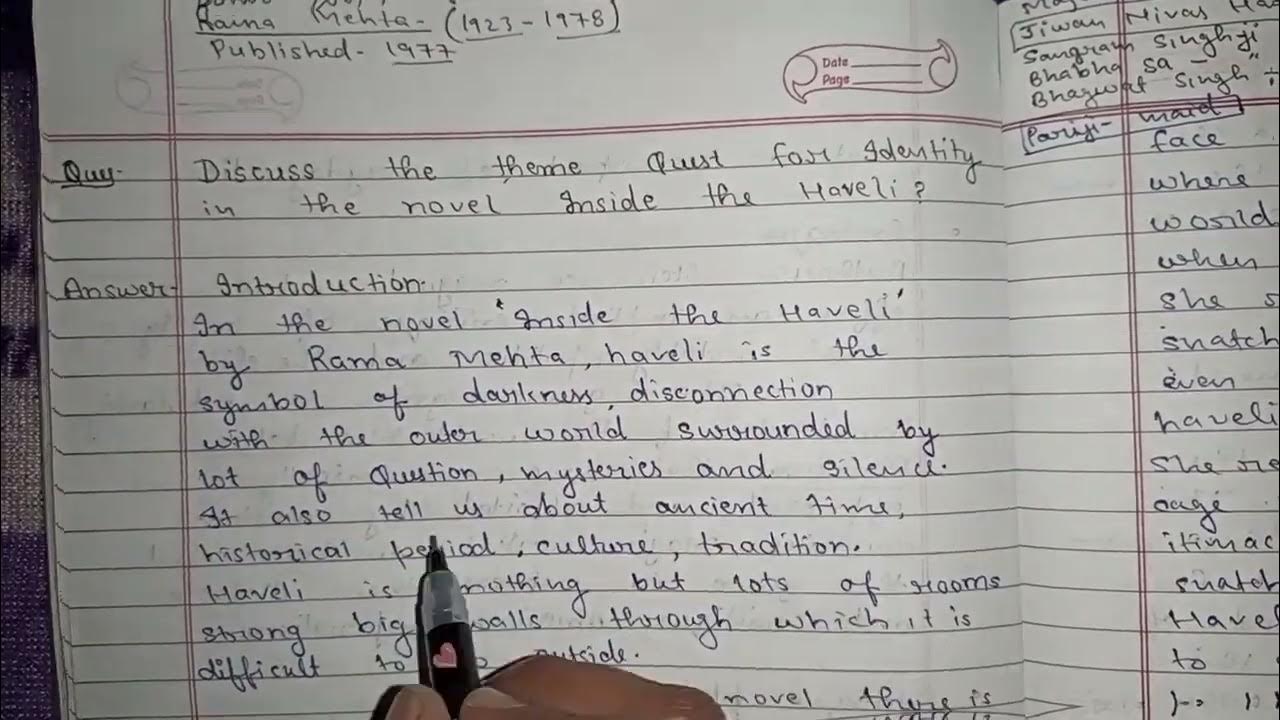 Rama Mehta- (1923-1978)
Published- 1977
Date
Page
Ques- Discuss the theme Quest for Identity
in the novel Inside the Haveli?
Answer- Introduction.
In the novel 'Inside the Haveli'
by Rama Mehta, haveli is the
symbol of darkness, disconnection
with the outer world surrounded by
lot of Question, mysteries and silence.
It also tell us about ancient time,
historical period, culture, tradition.
Haveli is nothing but lots of rooms
strong big walls through which it is
difficult to outside.
novel there is
Jiwan Nivas
Sangram Singhji
Bhabha sa -
Bhagwat Singh
Pariji- maid
face
where
world
when
she s
snatch
even
haveli
she re
itimac
snatch
Have
to